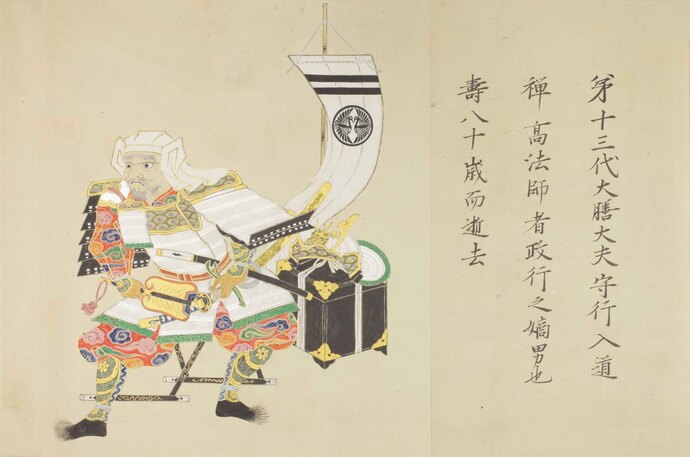 第十三代大膳大夫守行入道
禅高法師者政行之嫡男也
壽八十歳而逝去